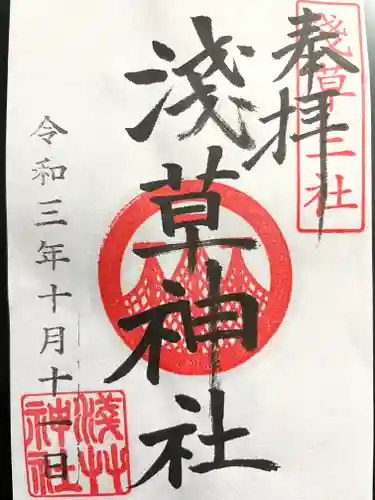 奉拝
淺草三社
淺草神社
令和三年十月十一日
淺艸神社